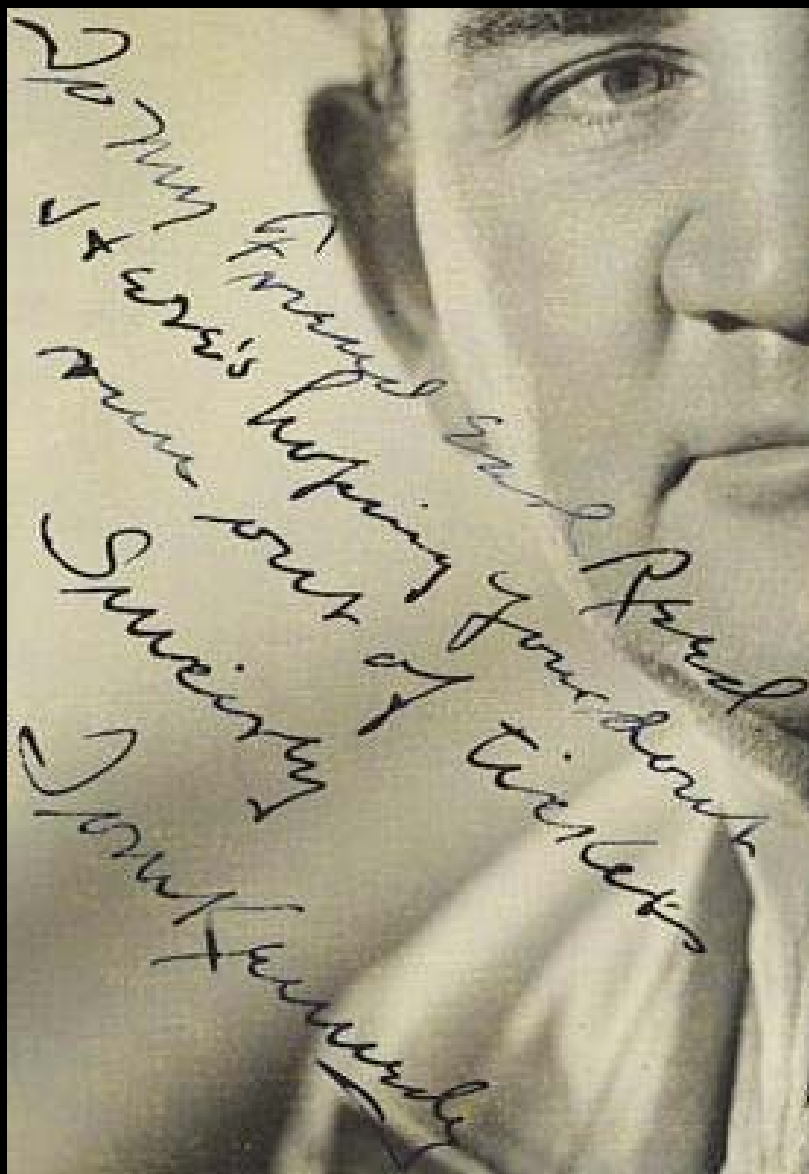 To my Friend Earl Reed
Here's hoping you dont
run out of tickets
Sincerely
Tom Kennedy